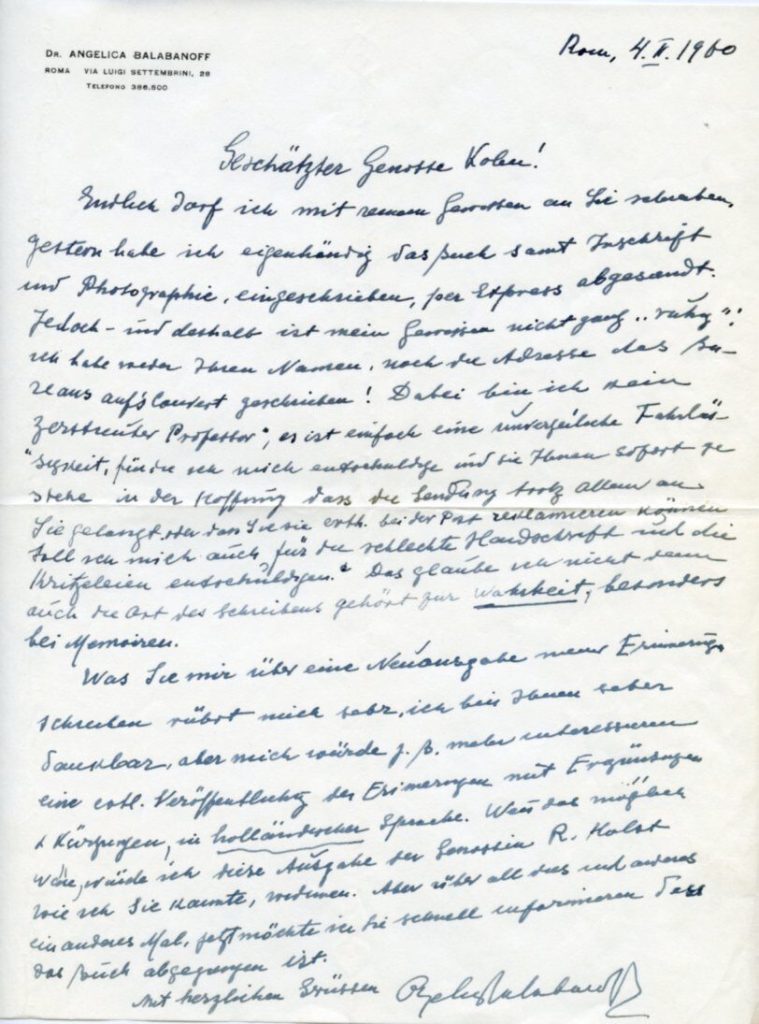 DR. ANGELICA BALABANOFF
ROMA VIA LUIGI SETTEMBRINI, 28
TELEFONO 386.500
Rom, 4. II. 1960
Geschätzter Genosse Kolen!
Endlich darf ich mit reinem Gewissen an Sie schreiben,
gestern habe ich eigenhändig das Buch samt Inschrift
und Photographie, eingeschrieben, per Express abgesandt.
Jedoch - und deshalb ist mein Gewissen nicht ganz "ruhig":
ich habe weder Ihren Namen, noch die Adresse des Bu-
reaus aufs Couvert geschrieben! Dabei bin ich kein
"zerstreuter Professor", es ist einfach eine unverzeihliche Fahrläs-
sigkeit, für die ich mich entschuldige und sie Ihnen sofort ge-
stehe in der Hoffnung dass die Sendung trotz allem an
Sie gelangt, oder dass Sie sie evtl. bei der Post reklamieren können
Soll ich mich auch für die schlechte Handschrift und die
Kritzeleien entschuldigen? Das glaube ich nicht denn
auch die Art des Schreibens gehört zur Wahrheit, besonders
bei Memoiren.
Was Sie mir über eine Neuausgabe meiner Erinnerungen
schreiben rührt mich sehr, ich bin Ihnen sehr
dankbar, aber mich würde z. B. mehr interessieren
eine evtl. Veröffentlichung der Erinerungen mit Ergänzungen
& Kürzungen, in holländischer Sprache. Wenn das möglich
wäre, würde ich diese Ausgabe der Genossin R. Holst
wie ich Sie kannte, widmen. Aber über all dies und anderes
ein anderes Mal, jetzt möchte ich Sie schnell informieren dass
das Buch abgegangen ist.
Mit herzlichen Grüssen Angelica Balabanoff